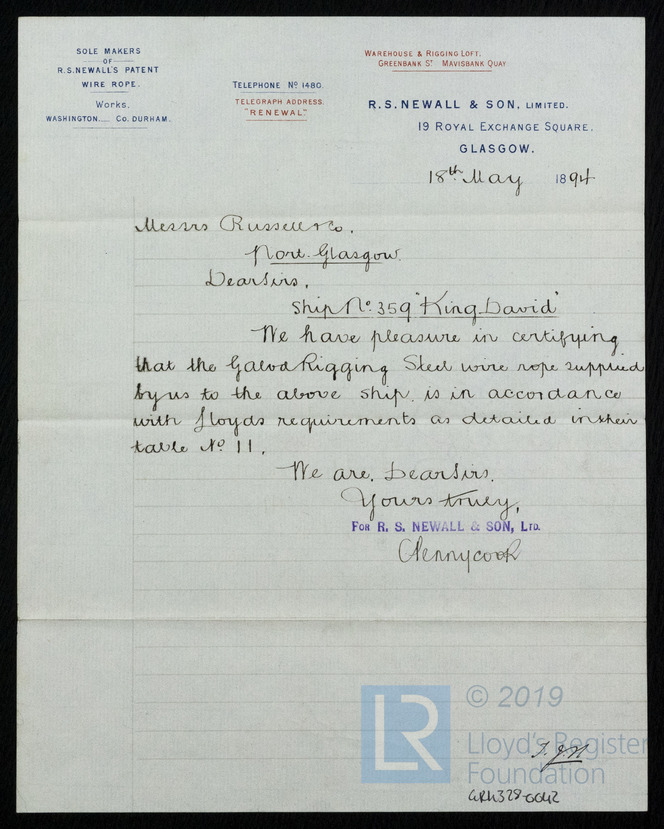 SOLE MAKERS
OF
R.S.NEWALL'S PATENT
WIRE ROPE.
Works.
WASHINGTON.... Co. DURHAM.
TELEPHONE No 1480.
TELEGRAPH ADDRESS.
"RENEWAL."
WAREHOUSE & RIGGING LOFT.
GREENBANK ST MAVISBANK QUAY
R.S. NEWALL & SON, LIMITED.
19 ROYAL EXCHANGE SQUARE.
GLASGOW.
18th May 1894
Messrs Russell & Co.
Port. Glasgow.
Dear Sirs,
Ship No. 359 "King David"
We have pleasure in certifying
that the Galvd Rigging Steel wire rope supplied
by us to the above ship. is in accordance
with Lloyds requirements as detailed in their
table No 11.
We are. Dear Sirs.
Yours truly,
FOR R. S. NEWALL & SON, LTD.
Pennycook
LR
© 2019
Lloyd's Register
Foundation